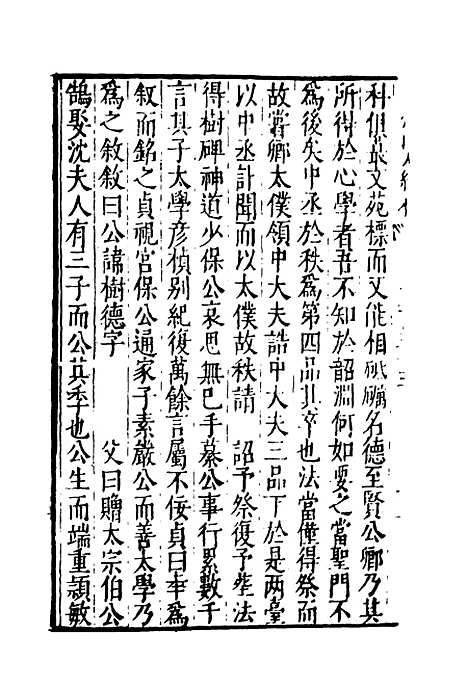 科俱最文苑標而又能相砥礪名德至賢公卿乃其
所得於心學者吾不知於韶淵何如要之當聖門不
爲後矣中丞於秩爲第四品其卒也法當僅得祭而
故嘗卿太僕領中大夫誥中大夫三品下於是两臺
以中丞計聞而以太僕故秩請 詔予祭復予塟法
得樹碑神道少保公哀思無已手摹公事行累數千
言其子太學彦楨别紀復萬餘言屬不佞貞曰幸爲
叙而銘之貞視宮保公通家子素嚴公而善太學乃
爲之敘敘曰公諱樹德字 父曰贈太宗伯公
鵠娶沈夫人有三子而公其季也公生而端重頴敏